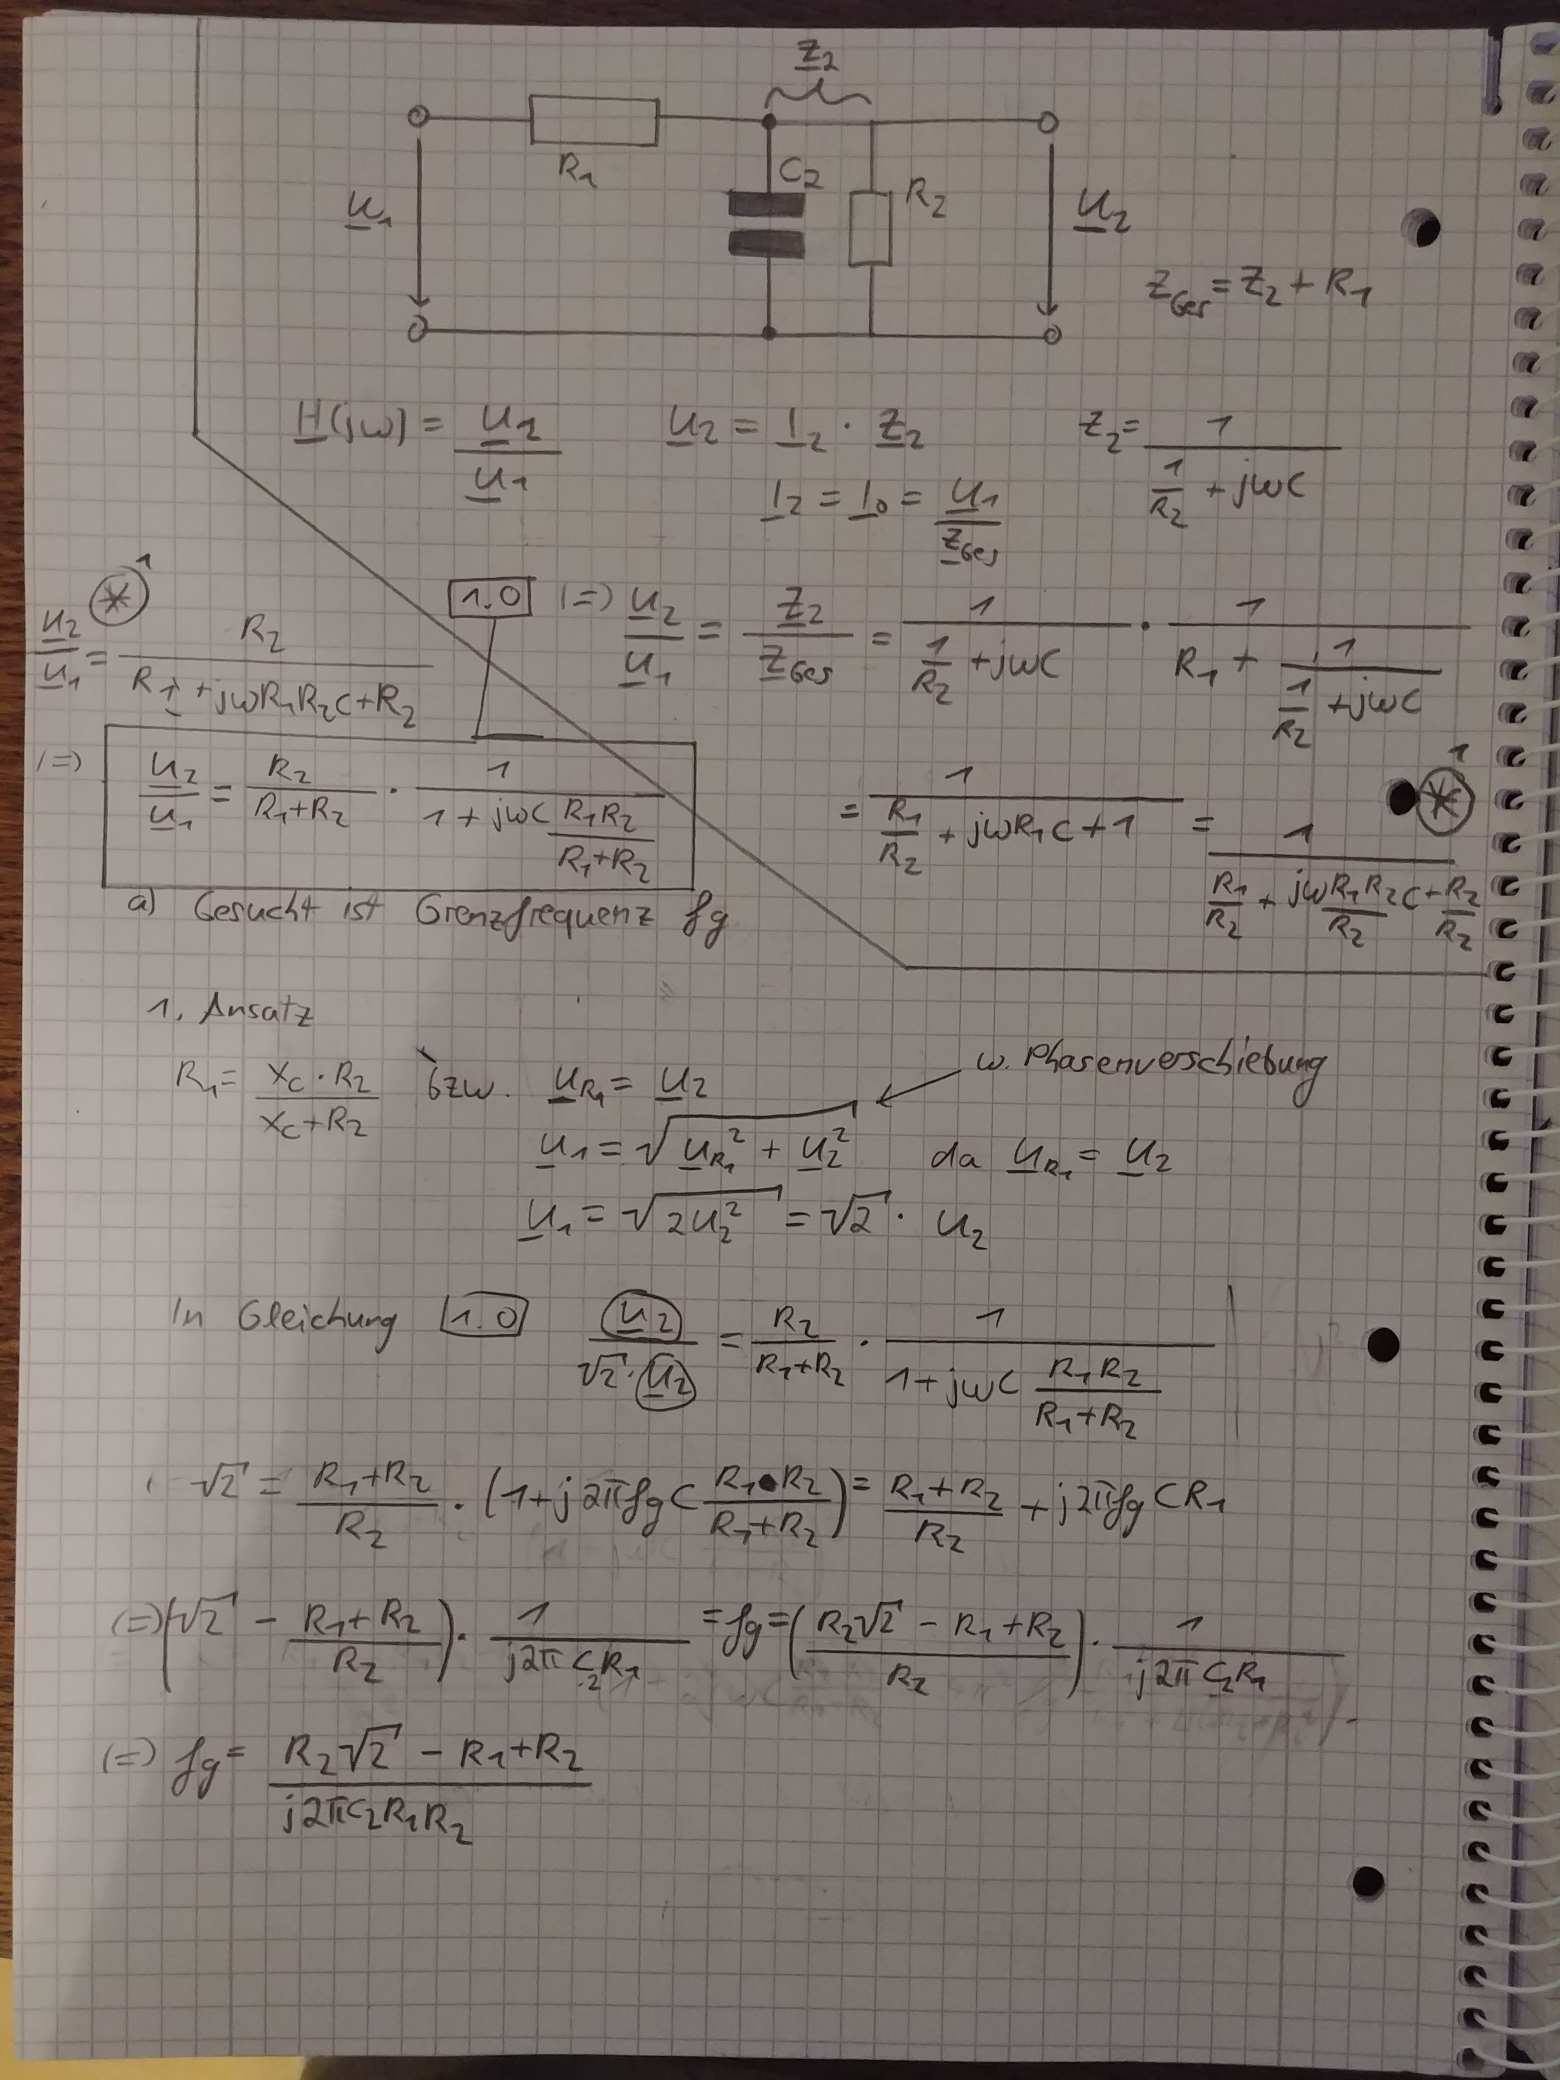 Z2
R1 C2 R2
U1 U2
ZGes = Z2 + R1
H(jω) = U2/U1 U2 = I2 · Z2 Z2 = 1/(1/R2 + jωC)
I2 = I0 = U1/ZGes
*1 1.0 (=) U2/U1 = Z2/ZGes = 1/(1/R2 + jωC) · 1/(R1 + 1/(1/R2 + jωC))
U2/U1 = R2/(R1 + jωR1R2C + R2)
(=) U2/U1 = R2/(R1+R2) · 1/(1 + jωC R1R2/(R1+R2))
= 1/(R1/R2 + jωR1C + 1) = 1/(R1/R2 + jωR1R2/R2 C + R2/R2) *1
a) Gesucht ist Grenzfrequenz fg
1. Ansatz
R1 = (XC · R2)/(XC + R2) bzw. UR1 = U2 w. Phasenverschiebung
U1 = √(UR1² + U2²) da UR1 = U2
U1 = √(2U2²) = √2 · U2
In Gleichung 1.0 U2/(√2 · U2) = R2/(R1+R2) · 1/(1 + jωC R1R2/(R1+R2))
√2 = (R1+R2)/R2 · (1 + j2πfgC R1•R2/(R1+R2)) = (R1+R2)/R2 + j2πfgCR1
(=) (√2 - (R1+R2)/R2) · 1/(j2πC2R1) = fg = ((R2√2 - R1+R2)/R2) · 1/(j2πC2R1)
(=) fg = (R2√2 - R1+R2)/(j2πC2R1R2)